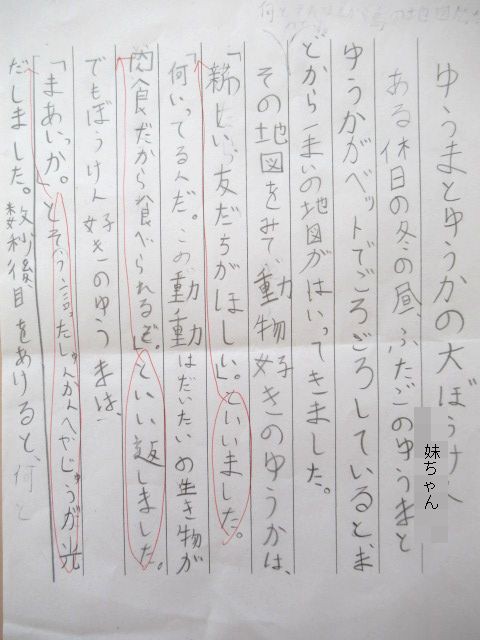 ゆうまとゆうかの大ぼうけん
妹ちゃん
ある休日の冬の昼、ふたごのゆうまと
ゆうかがベットでごろごろしているとま
どから一まいの地図がはいってきました。
その地図をみて動物好きのゆうかは、
「新しい友だちがほしい。」といいました。
「何いってるんだ。この はだいたいの生き物が
肉食だから食べられるぞ。」といい返しました。
でもぼうけん好きのゆうまは、
「まあいっか。」とそう言ったしゅんかんへやじゅうが光
だしました。数秒後目をあけると、何と